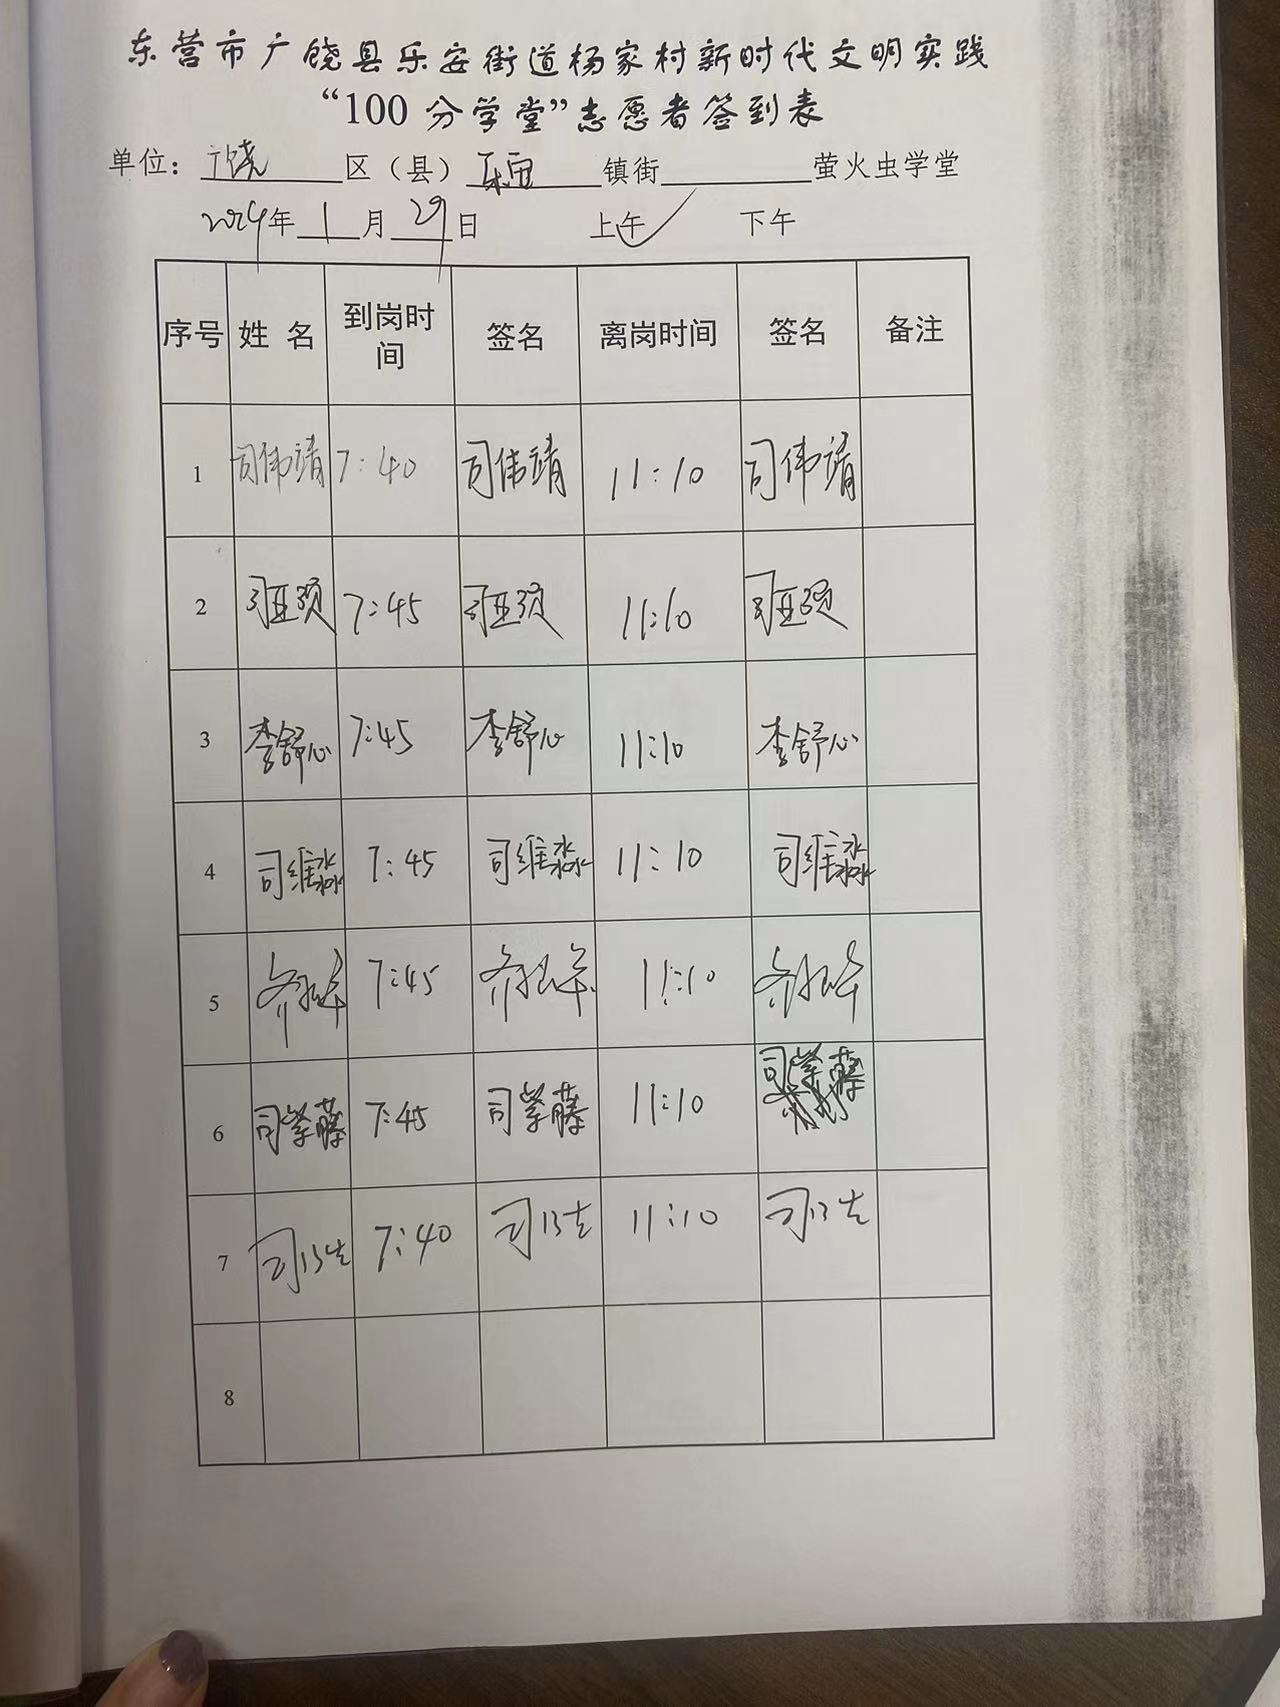 东营市广饶县乐安街道杨家村新时代文明实践
“100分学堂”志愿者签到表
单位：广饶区（县）乐安镇街萤火虫学堂
2024年1月29日 上午✓ 下午
序号 姓名 到岗时间 签名 离岗时间 签名 备注
1 司伟靖 7:40 司伟靖 11:10 司伟靖
2 7:45 11:10
3 李舒心 7:45 李舒心 11:10 李舒心
4 司维淼 7:45 司维淼 11:10 司维淼
5 7:45 11:10
6 司紫藤 7:45 司紫藤 11:10 司紫藤
7 7:40 11:10
8